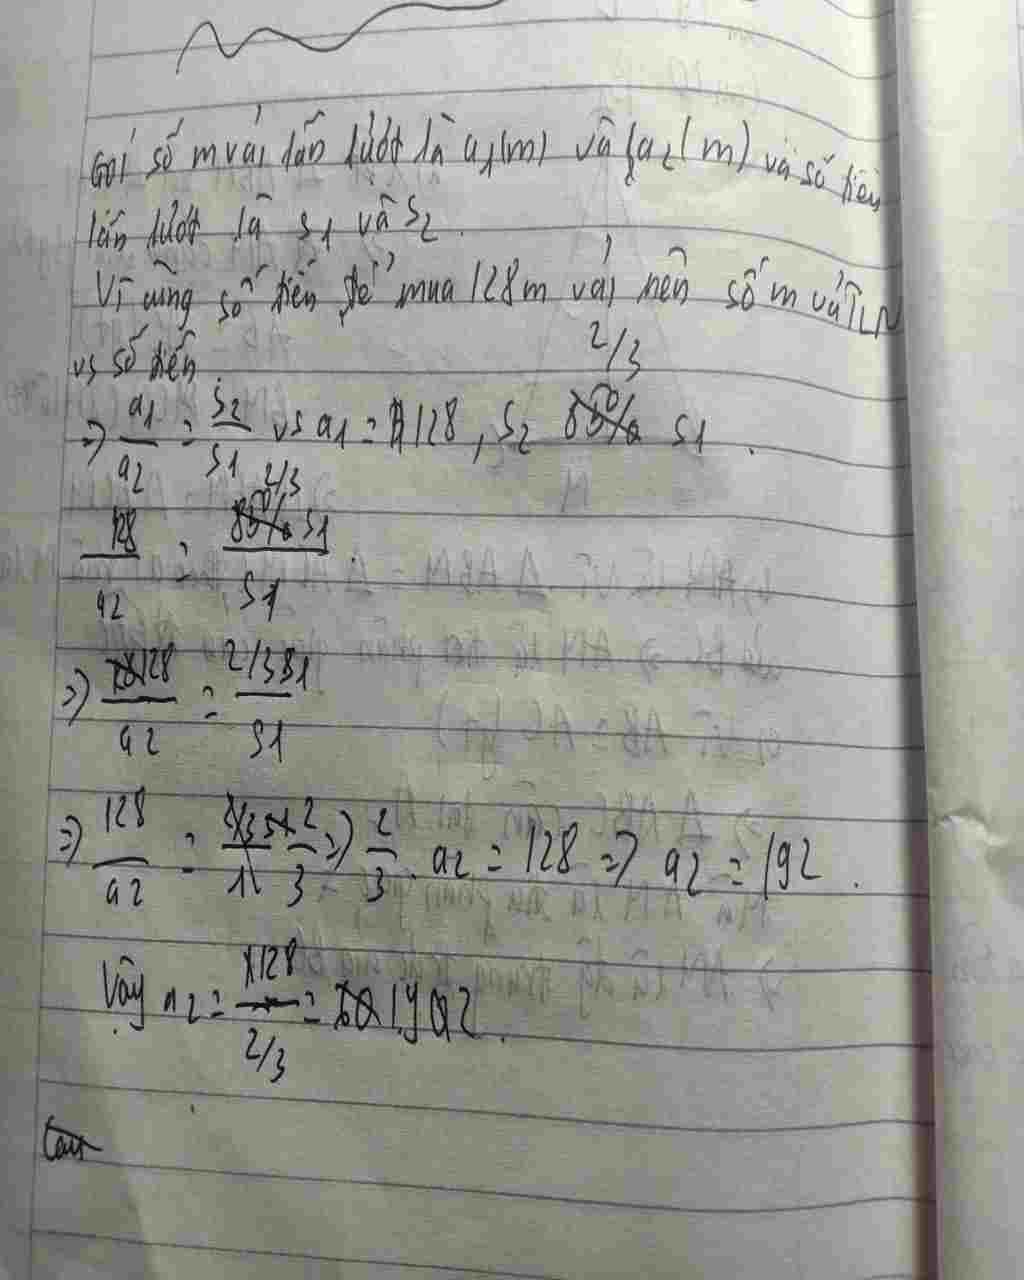 Gọi số m vải lần lượt là a1(m) và a2(m) và số tiền
lần lượt là s1 và s2.
Vì cùng số tiền để mua 128m vải nên số m vải TLN
vs số tiền.
2/3
=> a1/a2 = s2/s1 vs a1 = 128, s2 s1.
128/a2 = 2/3 s1/s1
=> 128/a2 = 2/3 s1/s1
=> 128/a2 = 2/3 => 2/3 . a2 = 128 => a2 = 192.
Vậy a2 = 128/2/3 = 192.